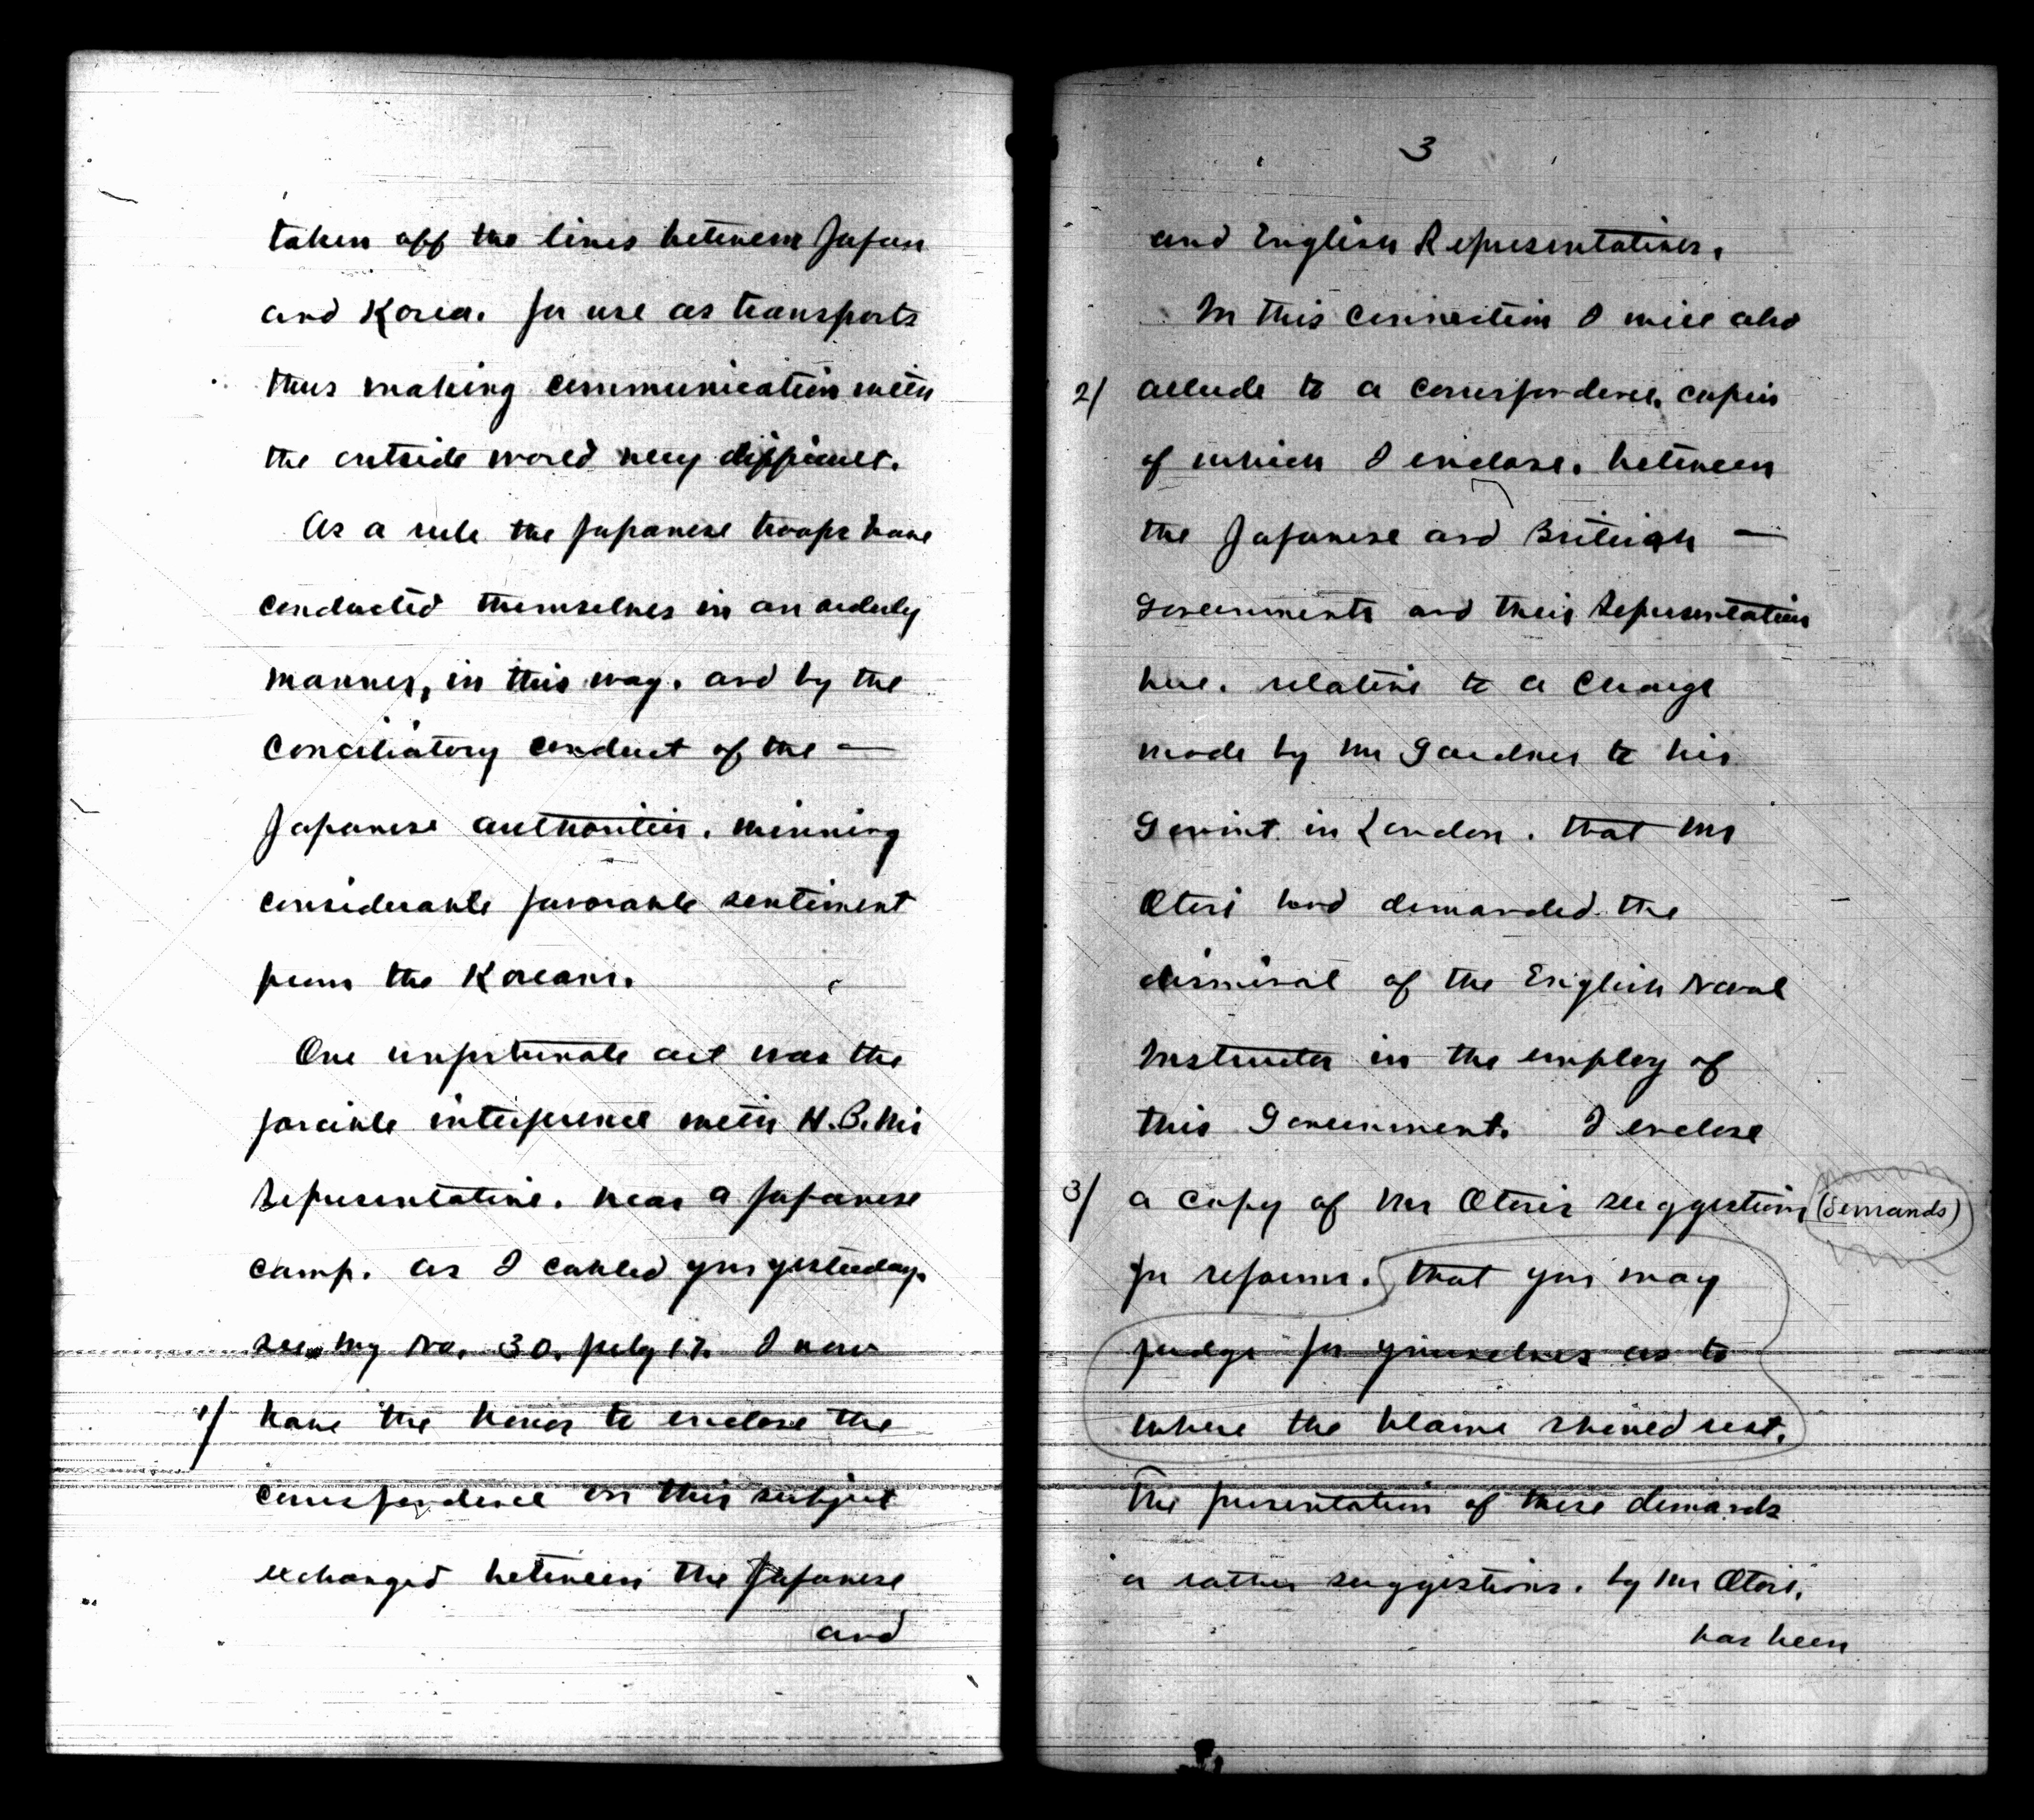 taken off the lines between Japan
and Korea. for use as transports
thus making communication with
the outside world very difficult.
As a rule the Japanese troops have
conducted themselves in an orderly
manner, in this way. and by the
conciliatory conduct of the —
Japanese authorities. winning
considerable favorable sentiment
from the Koreans.
One unfortunate act was the
forcible interference with H.B.M's
Representative. near a Japanese
camp. as I cabled you yesterday.
see my No. 30. July 17. I now
1/ have the honor to enclose the
correspondence on this subject
exchanged between the Japanese
and
3
and English Representatives.
In this connection I will also
2/ allude to a correspondence. copies
of which I enclose. between
the Japanese and British —
Governments and their Representatives
here. relative to a charge
made by Mr Gardner to his
Gov'mint in London. that Mr
Otori had demanded the
dismissal of the English Naval
Instructor in the employ of
this Government. I enclose
3/ a copy of Mr Otori's suggestions (demands)
for reforms. that you may
judge for yourselves as to
where the blame should rest.
The presentation of these demands
or rather suggestions. by Mr Otori,
has been